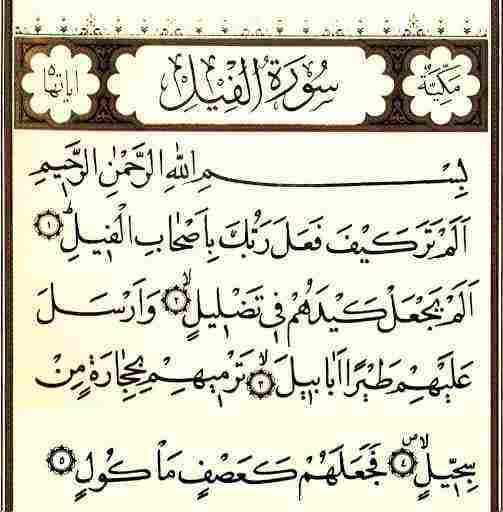 مَكِّيَّة سُورَةُ الْفِيلِ اٰيَاتُهَا ٥
بِسْمِ اللّٰهِ الرَّحْمٰنِ الرَّحِيمِ
اَلَمْ تَرَ كَيْفَ فَعَلَ رَبُّكَ بِاَصْحَابِ الْفِيلِ ١
اَلَمْ يَجْعَلْ كَيْدَهُمْ فِي تَضْلِيلٍ ٢ وَاَرْسَلَ
عَلَيْهِمْ طَيْرًا اَبَابِيلَ ٣ تَرْمِيهِمْ بِحِجَارَةٍ مِنْ
سِجِّيلٍ ٤ فَجَعَلَهُمْ كَعَصْفٍ مَأْكُولٍ ٥